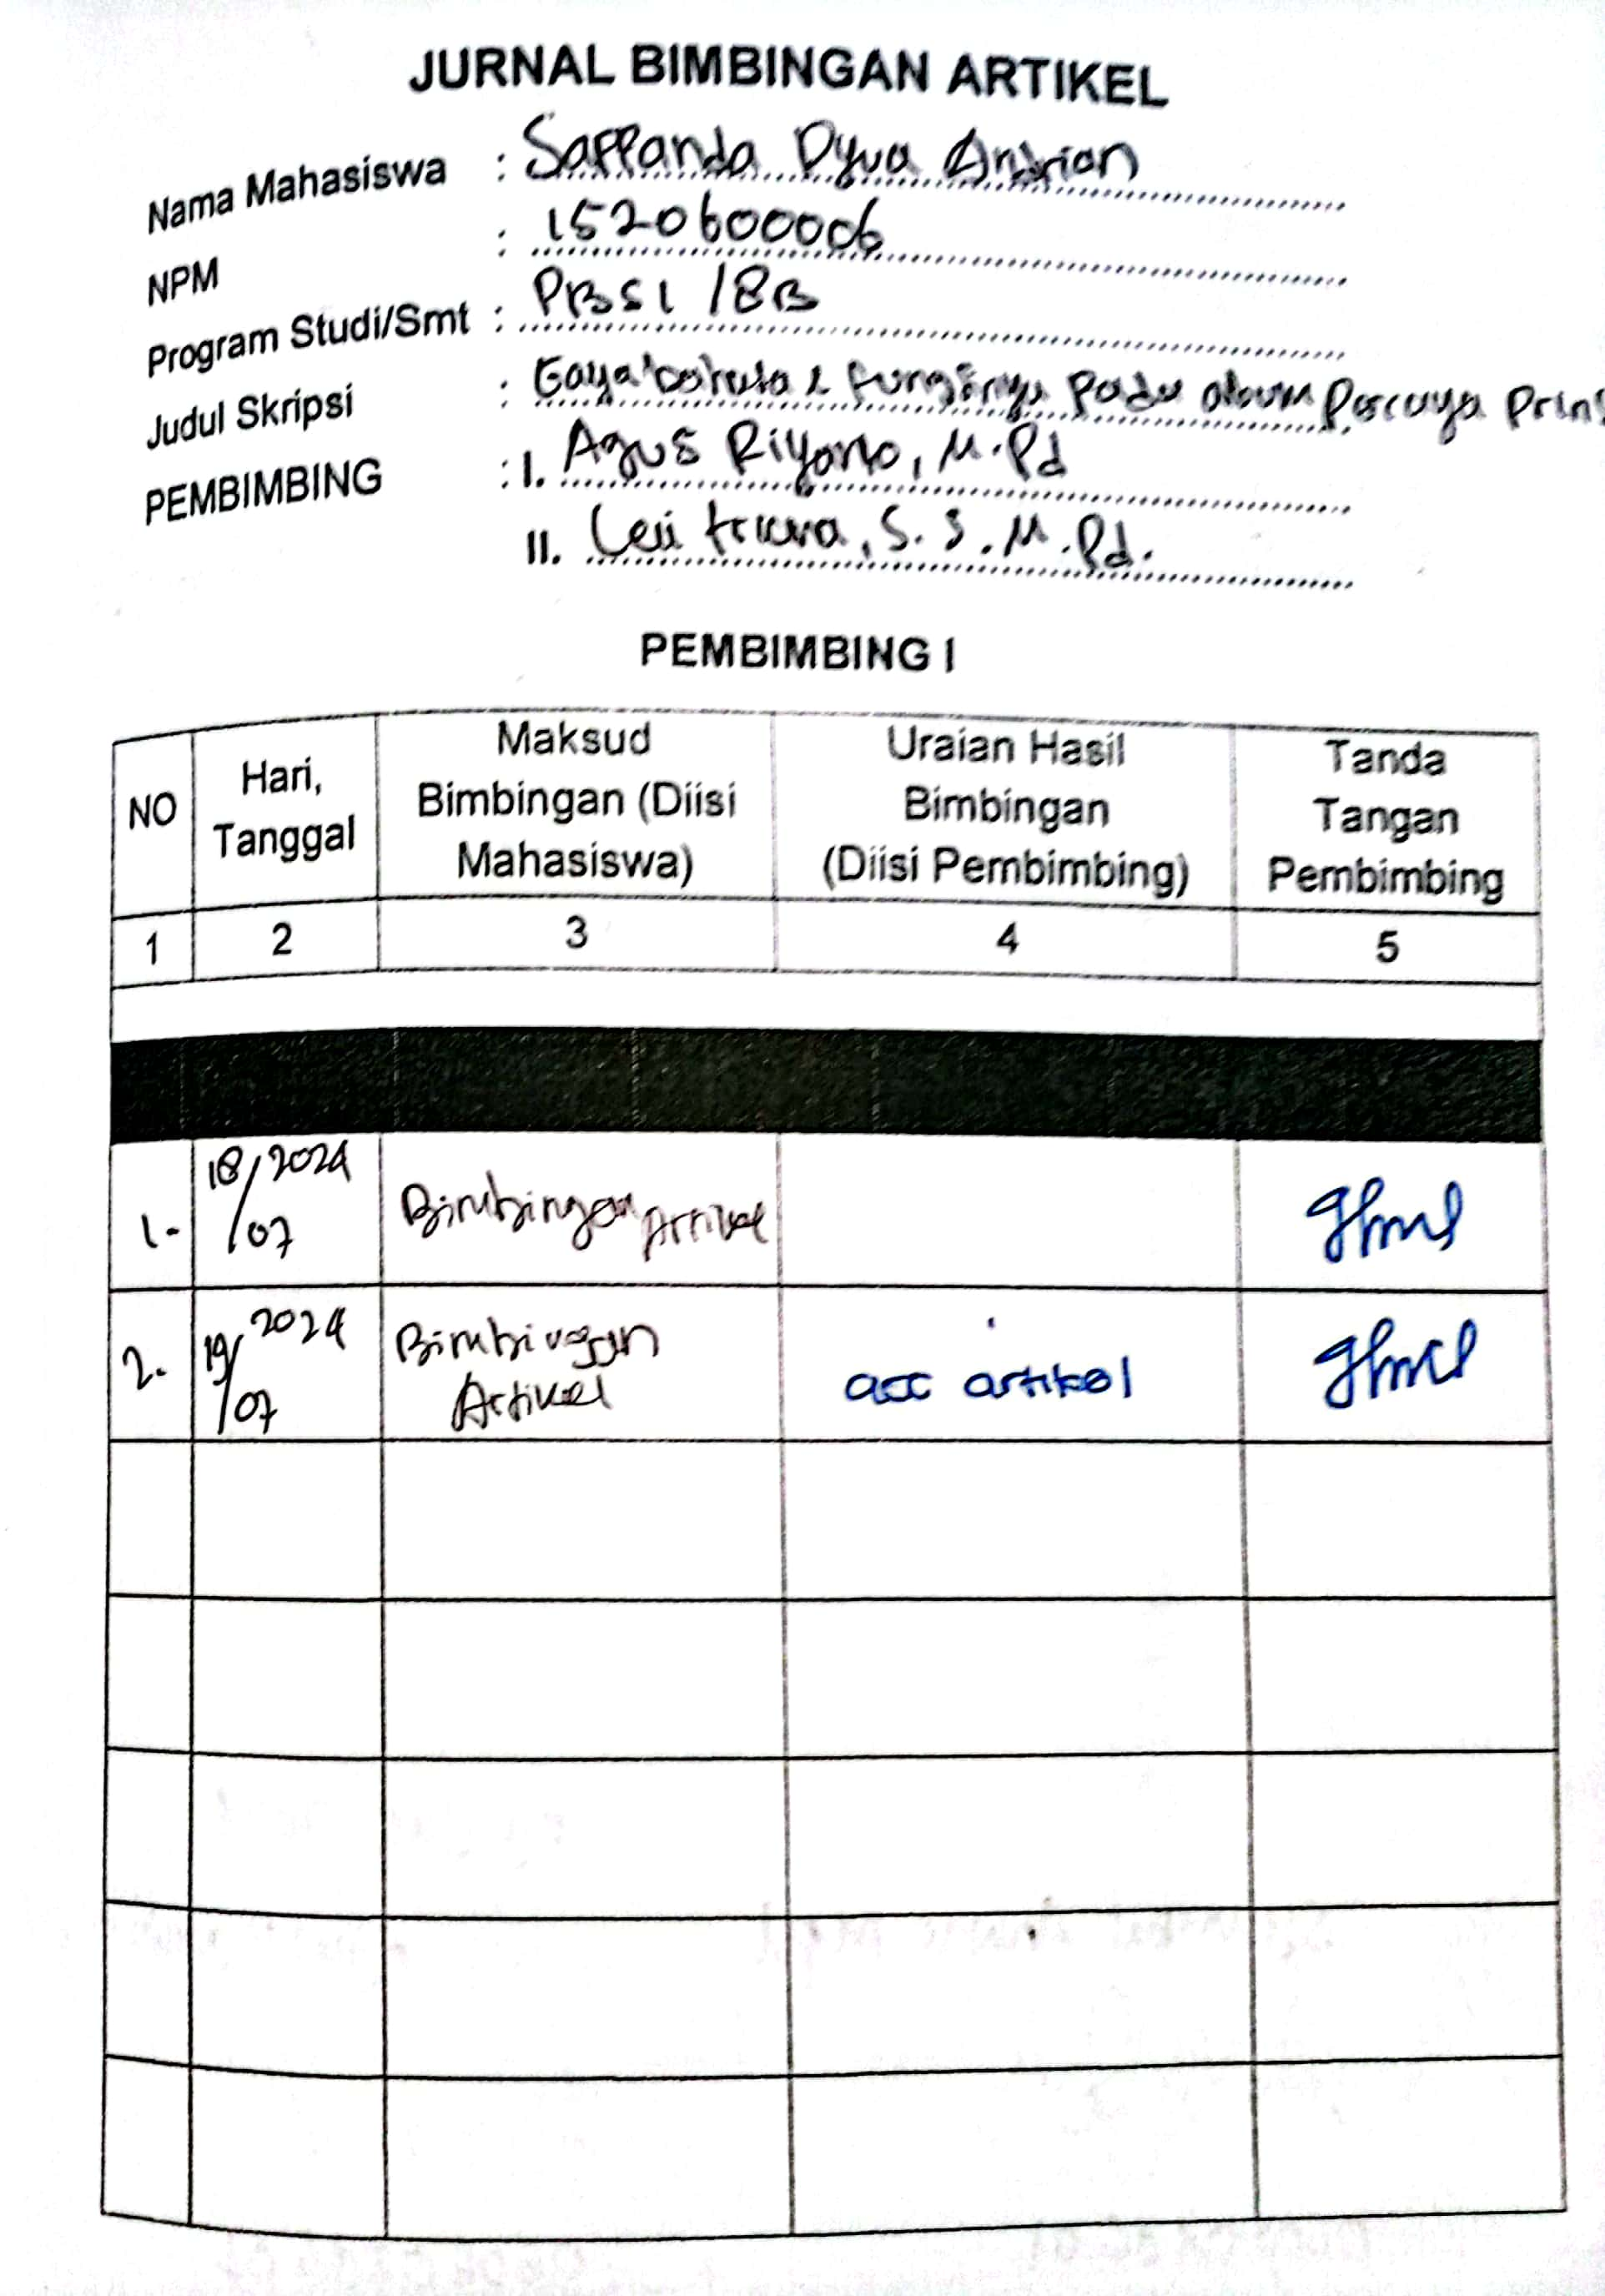 JURNAL BIMBINGAN ARTIKEL
Nama Mahasiswa : Saffanda Dyva Andrian
NPM : 1520600006
Program Studi/Smt : PBSI /8B
Judul Skripsi : Gaya bahasa & fungsinya pada album Percaya Prins
PEMBIMBING : I. Agus Riyanto, M.Pd
II. Leli triana, S.S. M.Pd.
PEMBIMBING I
NO
Hari,
Tanggal
Maksud
Bimbingan (Diisi
Mahasiswa)
Uraian Hasil
Bimbingan
(Diisi Pembimbing)
Tanda
Tangan
Pembimbing
1 2 3 4 5
1. 18/07 2024 Bimbingan Artikel
2. 19/07 2024 Bimbingan
Artikel
acc artikel